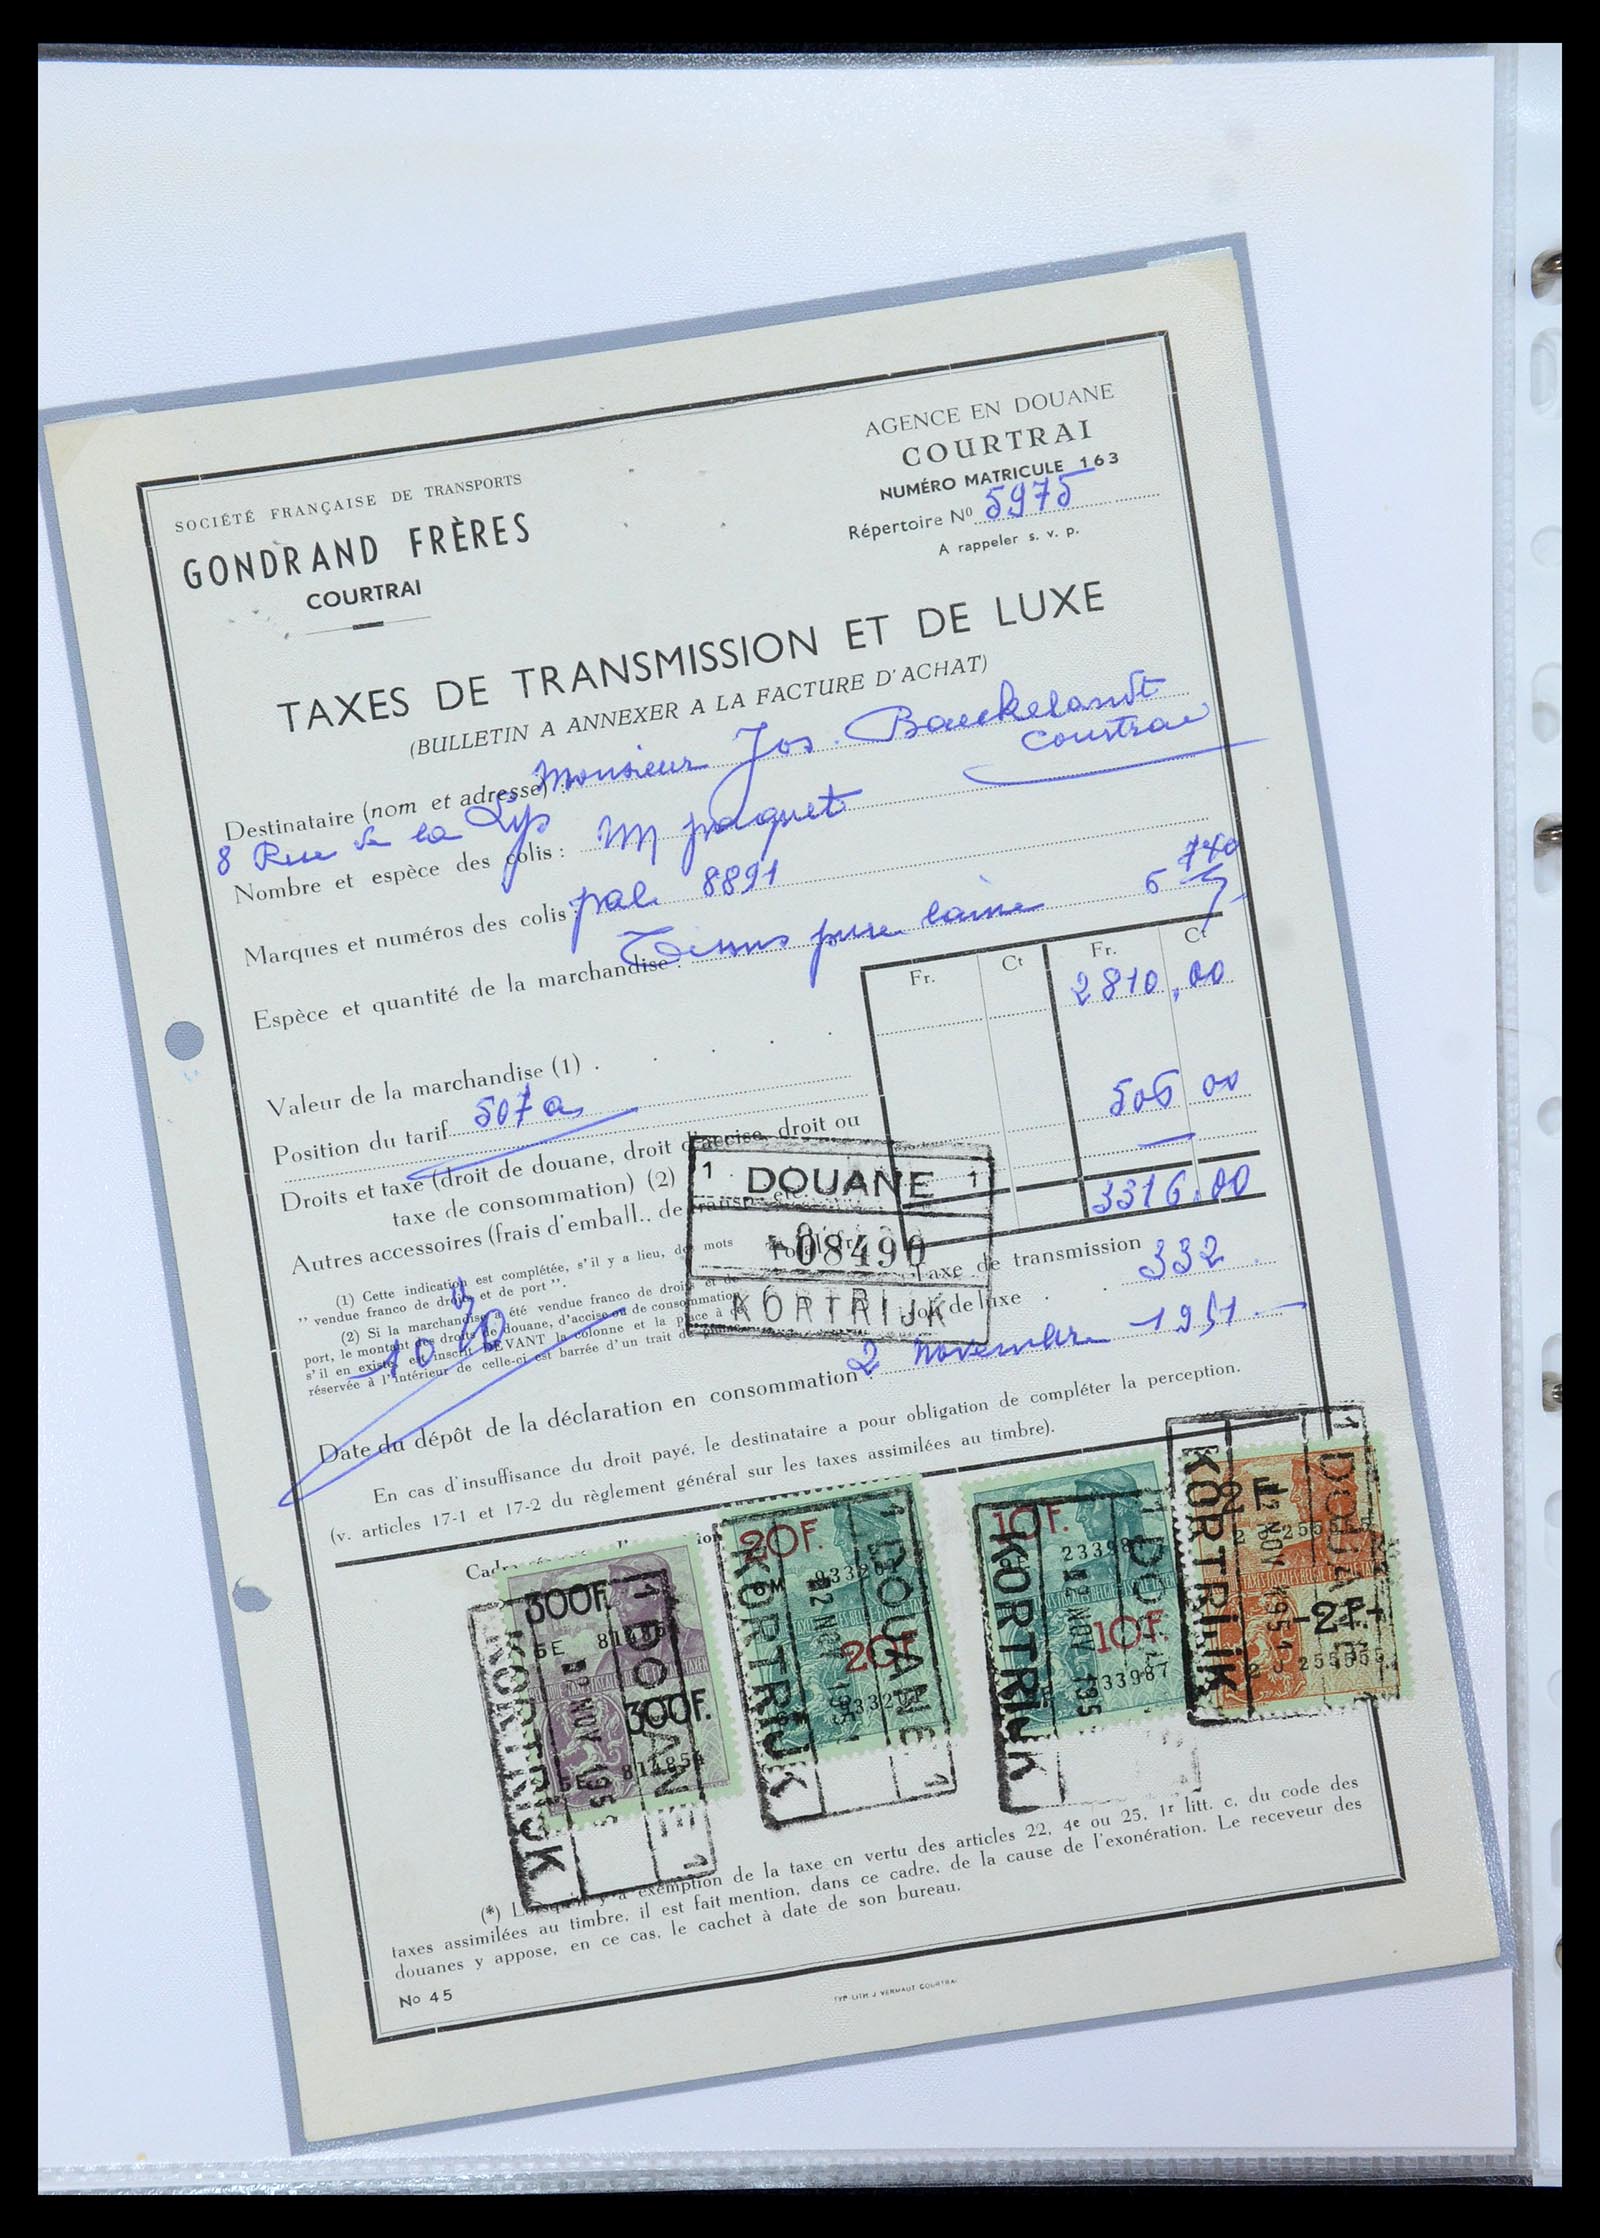 SOCIÉTÉ FRANÇAISE DE TRANSPORTS
GONDRAND FRÈRES
COURTRAI
AGENCE EN DOUANE
COURTRAI
NUMÉRO MATRICULE 163
Répertoire No 5975
A rappeler s. v. p.
TAXES DE TRANSMISSION ET DE LUXE
(BULLETIN A ANNEXER A LA FACTURE D'ACHAT)
Destinataire (nom et adresse) : Monsieur Jos. Baeckelandt
8 Rue de la Lys Courtrai
Nombre et espèce des colis : paquet
Marques et numéros des colis : 8891
Espèce et quantité de la marchandise : Tissus pure laine
Fr. Ct Fr. Ct
Valeur de la marchandise (1) . 2810,00
Position du tarif 507a
Droits et taxe (droit de douane, droit d'accise, droit ou
taxe de consommation) (2) 506 00
Autres accessoires (frais d'emball., de transp. etc.
3316,00
(1) Cette indication est complétée, s'il y a lieu, des mots
" vendue franco de droits et de port ".
(2) Si la marchandise a été vendue franco de droits et de
port, le montant des droits de douane, d'accise ou de consommation
s'il en existe, est inscrit DEVANT la colonne et la place à ce
réservée à l'intérieur de celle-ci est barrée d'un trait de plume.
Taxe de transmission 332
de luxe
1 DOUANE 1
08490
KORTRIJK
Date du dépôt de la déclaration en consommation : 2 novembre 1951
En cas d'insuffisance du droit payé, le destinataire a pour obligation de compléter la perception.
(v. articles 17-1 et 17-2 du règlement général sur les taxes assimilées au timbre).
300F.
5E 81485
300F.
5E 814854
1 DOUANE 1
KORTRIJK
20F.
6M 93320
20F.
1 DOUANE 1
KORTRIJK
10F.
23398
10F.
233987
KORTRIJK
2F
-2F-
2J 255555
1 DOUANE
2 NOV 1951
KORTRIJK
(*) Lorsqu'il y a exemption de la taxe en vertu des articles 22, 4e ou 25, 1r litt. c. du code des
taxes assimilées au timbre, il est fait mention, dans ce cadre, de la cause de l'exonération. Le receveur des
douanes y appose, en ce cas, le cachet à date de son bureau.
No 45
TYP-LITH J VERMAUT COURTRAI